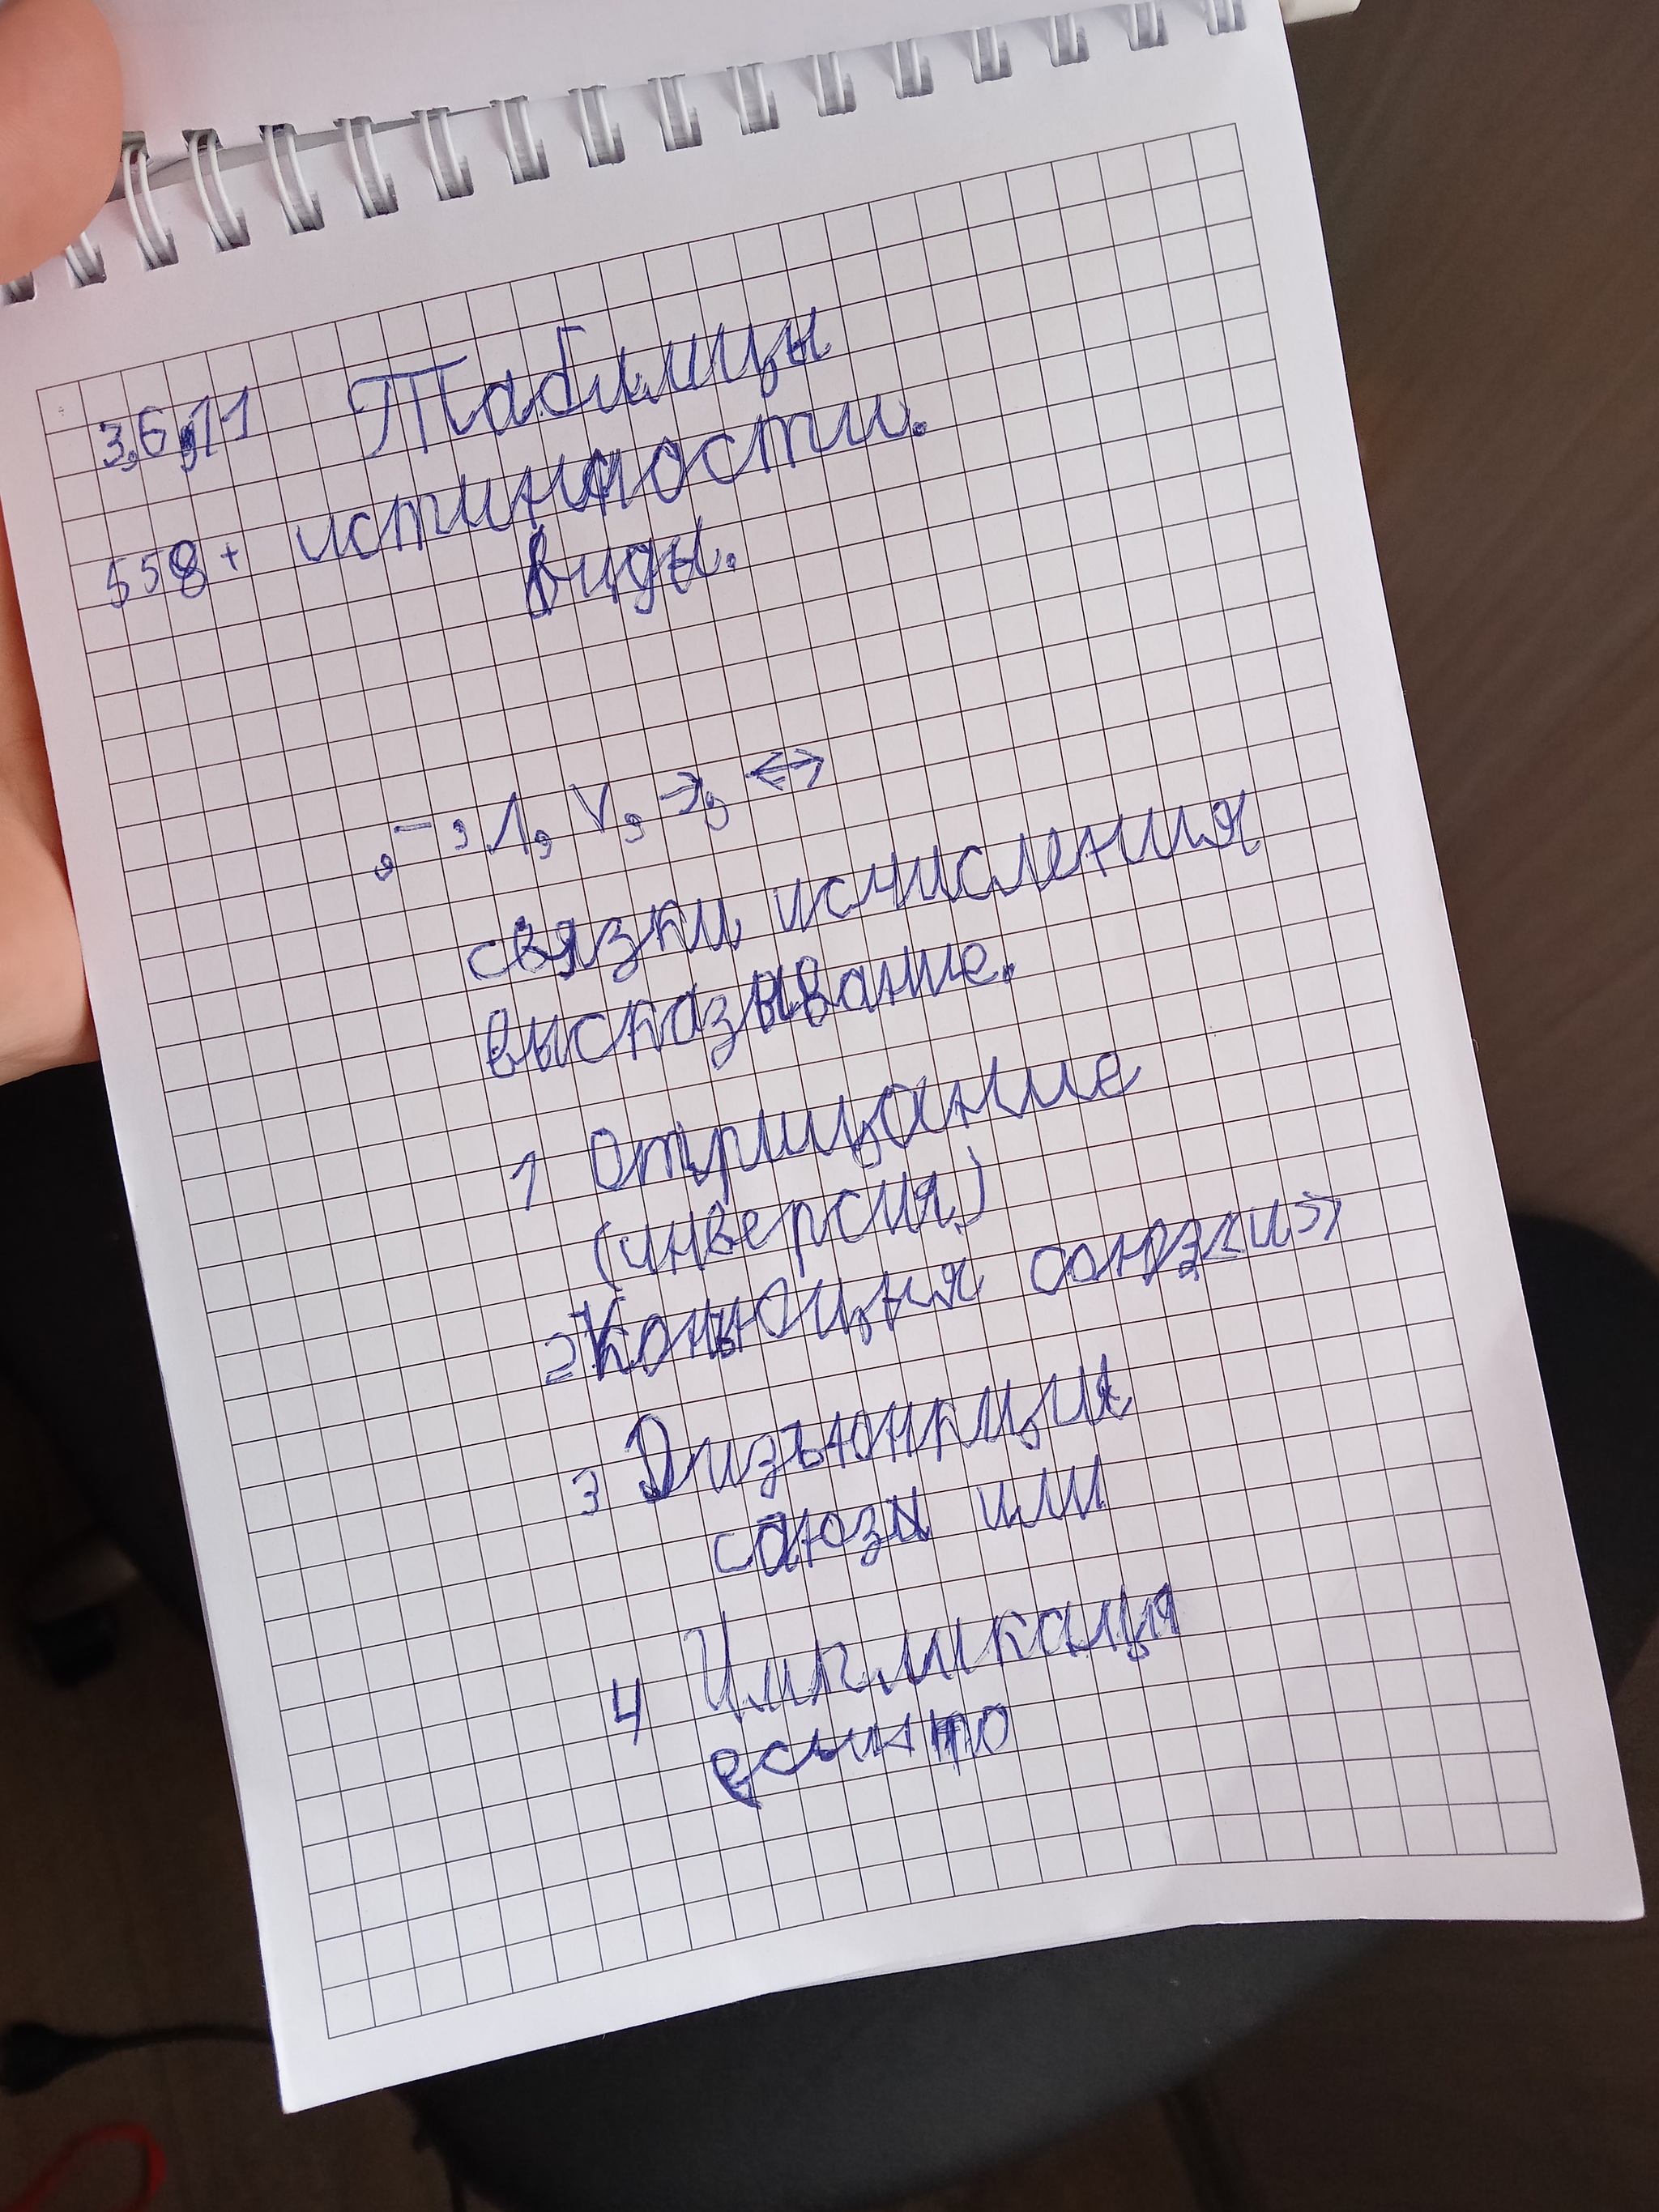 3,6,11 Таблицы
558+ истинности.
Виды.
, ‾ , Λ, V, →, ↔
связки исчисления
высказывание.
1 Отрицание
(инверсия)
2 Конъюция союз «и»
3 Дизъюнкция
саюзы или
4 Импликаця
если то